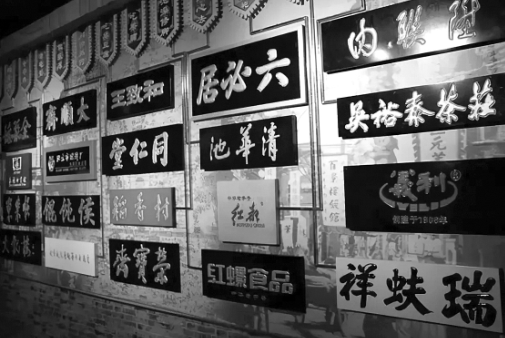 全聚德
大順齋
王致和
六必居
内聯陞
同仁堂
清華池
吳裕泰茶莊
餛飩侯
稻香村
紅都
義利
創建于1906年
榮寶齋
紅螺食品
瑞蚨祥